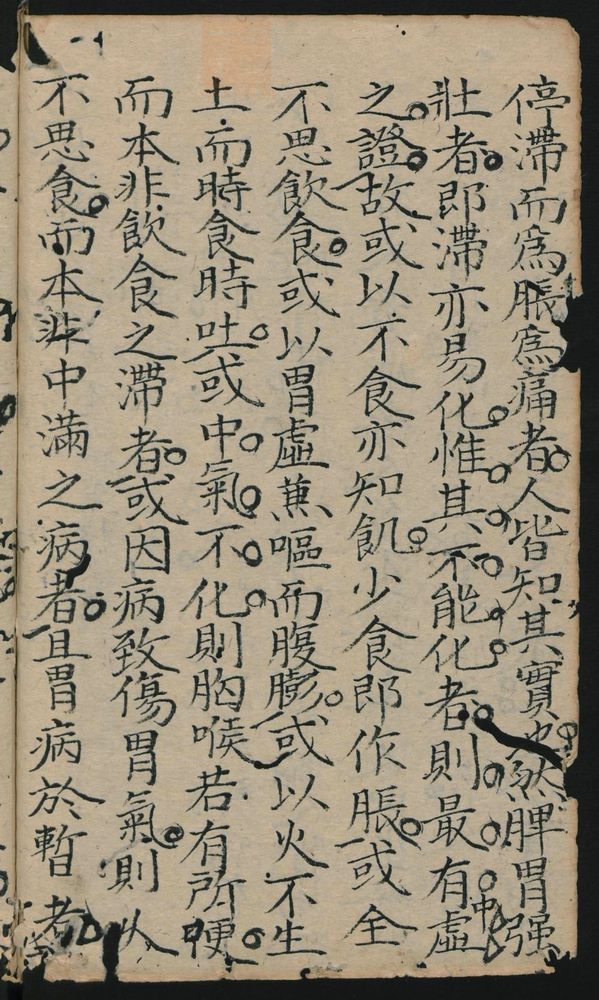 停滯而爲脹爲痛者人皆知其實也然脾胃强
壯者即滯亦易化惟其不能化者則最有虛中
之證故或以不食亦知飢少食即作脹或全
不思飲食或以胃虛蕉嘔而腹膨或以火不生
土而時食時吐或中氣不化則胸喉若有所便
而本非飲食之滯者或因病致傷胃氣則久
不思食而本非中滿之病者且胃病於暫者